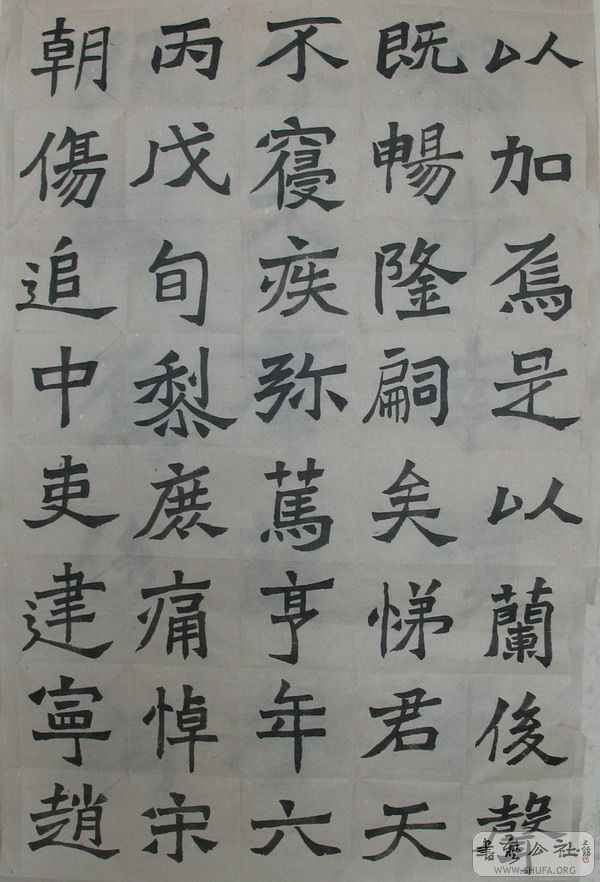 以加焉是以蘭後
既暢隆嗣矣悌君天
不寢疾弥篤亨年六
丙戊旬黎庶痛悼宋
朝傷追中吏建寧趙
書藝公社
WWW.SHUFA.ORG